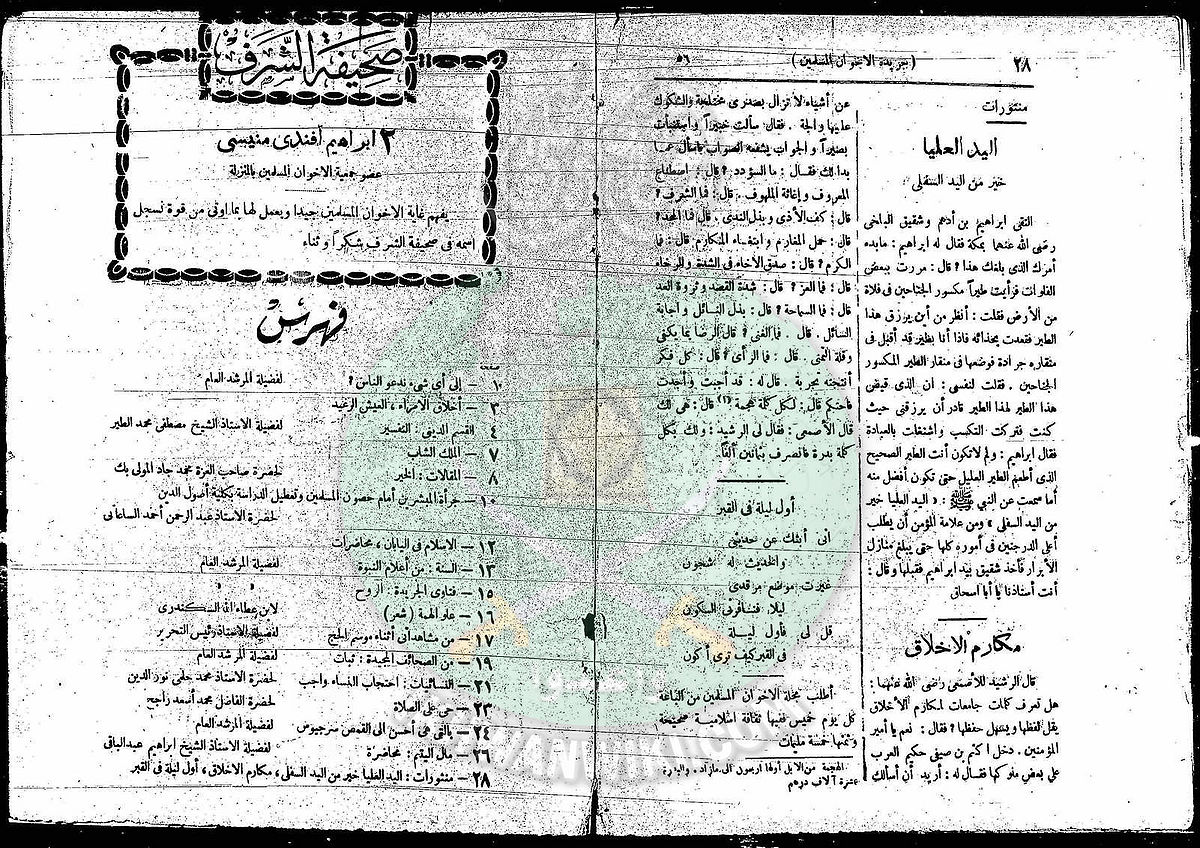 ٢٨
(جريدة الاخوان المسلمين)
٥٦
منثورات
اليد العليا
خير من اليد السفلى
التقى ابراهيم بن أدهم وشقيق البلخى
رضى الله عنهما بمكة فقال له ابراهيم : مابدء
أمرك الذى بلغك هذا ؟ قال : مررت ببعض
الفلوات فرأيت طيراً مكسور الجناحين فى فلاة
من الأرض فقلت : أنظر من أين يرزق هذا
الطير فقعدت بحذائه فاذا أنا بطير قد أقبل فى
منقاره جرادة فوضعها فى منقار الطير المكسور
الجناحين . فقلت لنفسى : ان الذى قيض
هذا الطير لهذا الطير قادر أن يرزقنى حيث
كنت فتركت التكسب واشتغلت بالعبادة
فقال ابراهيم : ولم لاتكون أنت الطير الصحيح
الذى أطعم الطير العليل حتى تكون أفضل منه
أما سمعت عن النبى ﷺ : « اليد العليا خير
من اليد السفلى » ومن علامة المؤمن أن يطلب
أعلى الدرجتين فى أموره كلها حتى يبلغ منازل
الأبرار فأخذ شقيق بيد ابراهيم فقبلها وقال :
أنت أستاذنا يا أبا اسحاق
مكارم الاخلاق
قال الرشيد للأصمعى رضى الله عنهما :
هل تعرف كلمات جامعات لمكارم الأخلاق
يقل لفظها ويسهل حفظها ؟ فقال : نعم يا أمير
المؤمنين . دخل اكثم بن صيفى حكيم العرب
على بعض ملوكها فقال له : أريد أن أسألك
عن أشياء لا تزال بصدرى مختلجة والشكوك
عليها والجة . فقال سألت خبيراً واستنبأت
بصيراً والجواب يشفعه الصواب فاسأل عما
بدا لك فقال : ما السؤدد ؟ قال : اصطناع
المعروف وإغاثة الملهوف . قال : فما الشرف ؟
قال : كف الأذى وبذل الندى . قال فما المجد ؟
قال : حمل المغارم وابتناء المكارم قال : فما
الكرم ؟ قال : صدق الاخاء فى الشدة والرخاء
قال : فما العز ؟ قال : شدة العضد وثروة العدد
قال : فما السماحة ؟ قال : بذل النائل واجابة
السائل . قال : فما الغنى ؟ قال الرضا بما يكفى
وقلة التمنى . قال : فما الرأى ؟ قال : كل فكر
أنتجته تجربة . قال له : قد أجبت وأجدت
فاحتكم قال : لكل كلمة هجمة (١) قال : هى لك
قال الأصمعى : فقال لى الرشيد : ولك بكل
كلمة بدرة فانصرف بثمانين ألفاً.
أول ليلة فى القبر
انى أبثك من حديثى
والحديث له شجون
غيرت موضع مرقدى
ليلا ففارقنى السكون
قل لى فأول ليلة
فى القبر كيف ترى أكون
أطلب مجلة الاخوان المسلمين من الباعة
كل يوم خميس ففيها ثقافة اسلامية صحيحة
وثمنها خمسة مليمات
الهجمة من الابل أولها أربعون الى مازاد . والبدرة
عشرة آلاف درهم
صحيفة الشرف
٢ ابراهيم افندى منيسى
عضو جمعية الاخوان المسلمين بالمنزلة
يفهم غاية الاخوان المسلمين جيدا ويعمل لها بما اوتى من قوة نسجل
اسمه فى صحيفة الشرف شكراً وثناء
فهرس
صفحة
١ — إلى أى شىء ندعو الناس ؟ لفضيلة المرشد العام
٣ — أخلاق الامراء ، العيش الرغيد
٤ — القسم الدينى : التفسير لفضيلة الاستاذ الشيخ مصطفى محمد الطير
٧ — الملك الشاب
٨ — المقالات : الخير لحضرة صاحب العزة محمد جاد المولى بك
١٠ — جرأة المبشرين أمام حصون المسلمين وتعطيل الدراسة بكلية أصول الدين
لحضرة الاستاذ عبد الرحمن أحمد الساعاتى
١٢ — الاسلام فى اليابان ، محاضرات
١٣ — السنة : من أعلام النبوة لفضيلة المرشد العام
١٥ — فتاوى الجريدة : الروح » »
١٦ — علو الهمة (شعر) لابن عطاء الله السكندرى
١٧ — من مشاهداتى أثناء موسم الحج لفضيلة الاستاذ رئيس التحرير
١٩ — من الصحائف المجيدة : ثبات لفضيلة المرشد العام
٢١ — النسائيات : احتجاب النساء واجب لحضرة الاستاذ محمد حلمى نور الدين
٢٣ — حى على الصلاة لحضرة الفاضل محمد أسعد راجح
٢٤ — بالتى هى أحسن الى القمص سرجيوس لفضيلة المرشد العام
٢٦ — مال اليتيم : محاضرة لفضيلة الاستاذ الشيخ ابراهيم عبد الباقى
٢٨ — منثورات : اليد العليا خير من اليد السفلى ، مكارم الاخلاق ، أول ليلة فى القبر